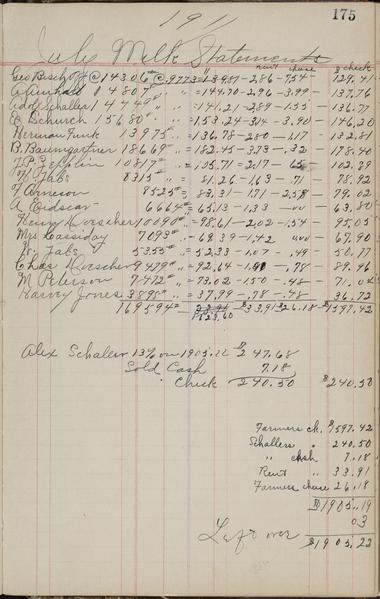 1911
175
July Milk Statements
rent cheese
check
Geo Bischoff @ 14306# @.9773 = 139.81 - 2.86 - 7.54 - 129.41
14807# " = 144.70 - 2.96 - 3.99 - 137.76
Add Schaller 14449# " = 141.21 - 2.89 - 1.55 - 136.77
E Schurch 15680# " = 153.24 - 3.14 - 3.90 - 146.20
Herman Funk 13975 " = 136.78 - 2.80 - 1.17 - 132.81
B. Baumgartner 18669# " = 182.45 - 3.73 - .32 - 178.40
10817# " = 105.71 = 2.17 - 65 - 102.89
8315# " = 81.26 - 1.63 - .71 78.92
F Arneson 8525# = 83.31 - 1.71 - 2.58 - 79.02
A Eidscar 6664# = 65.13 - 1.33 - 00 63.80
Henry Dorscher 10090# = 98.61 - 2.02 - 1.54 - 95.05
Mrs Cassiday 7093# = 69.39 - 1.42 67.90
5355# = 52.33 - 1.07 - .49 50.77
Chas Dorscher 9479# = 92.64 - 1.90 - .78 - 89.96
M Peterson 7472# = 73.02 - 1.50 - .48 - 71.04
Harvey Jones 3898# = 37.99 - .78 - .48 - 36.72
169594# $33.91 $26.18 - $1597.42
Alex Schaller 13% on 1905.22 $247.68
Sold Cash 7.18
Check 240.50 $240.50
Farmers ch. $1597.42
Schallers " 240.50
" cash 7.18
Rent " 33.91
Farmers cheese 26.18
$1905.19
03
Left over $1905.22